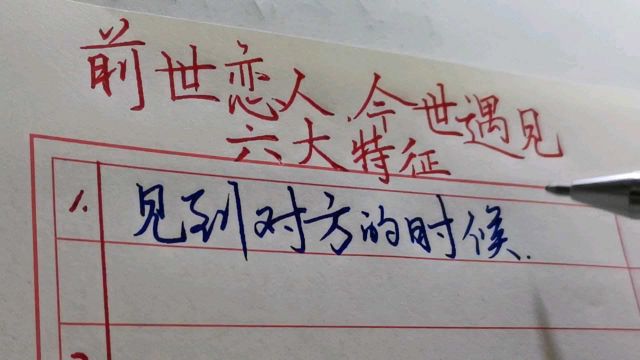 前世恋人.今世遇见
六大特征
1. 见到对方的时候.